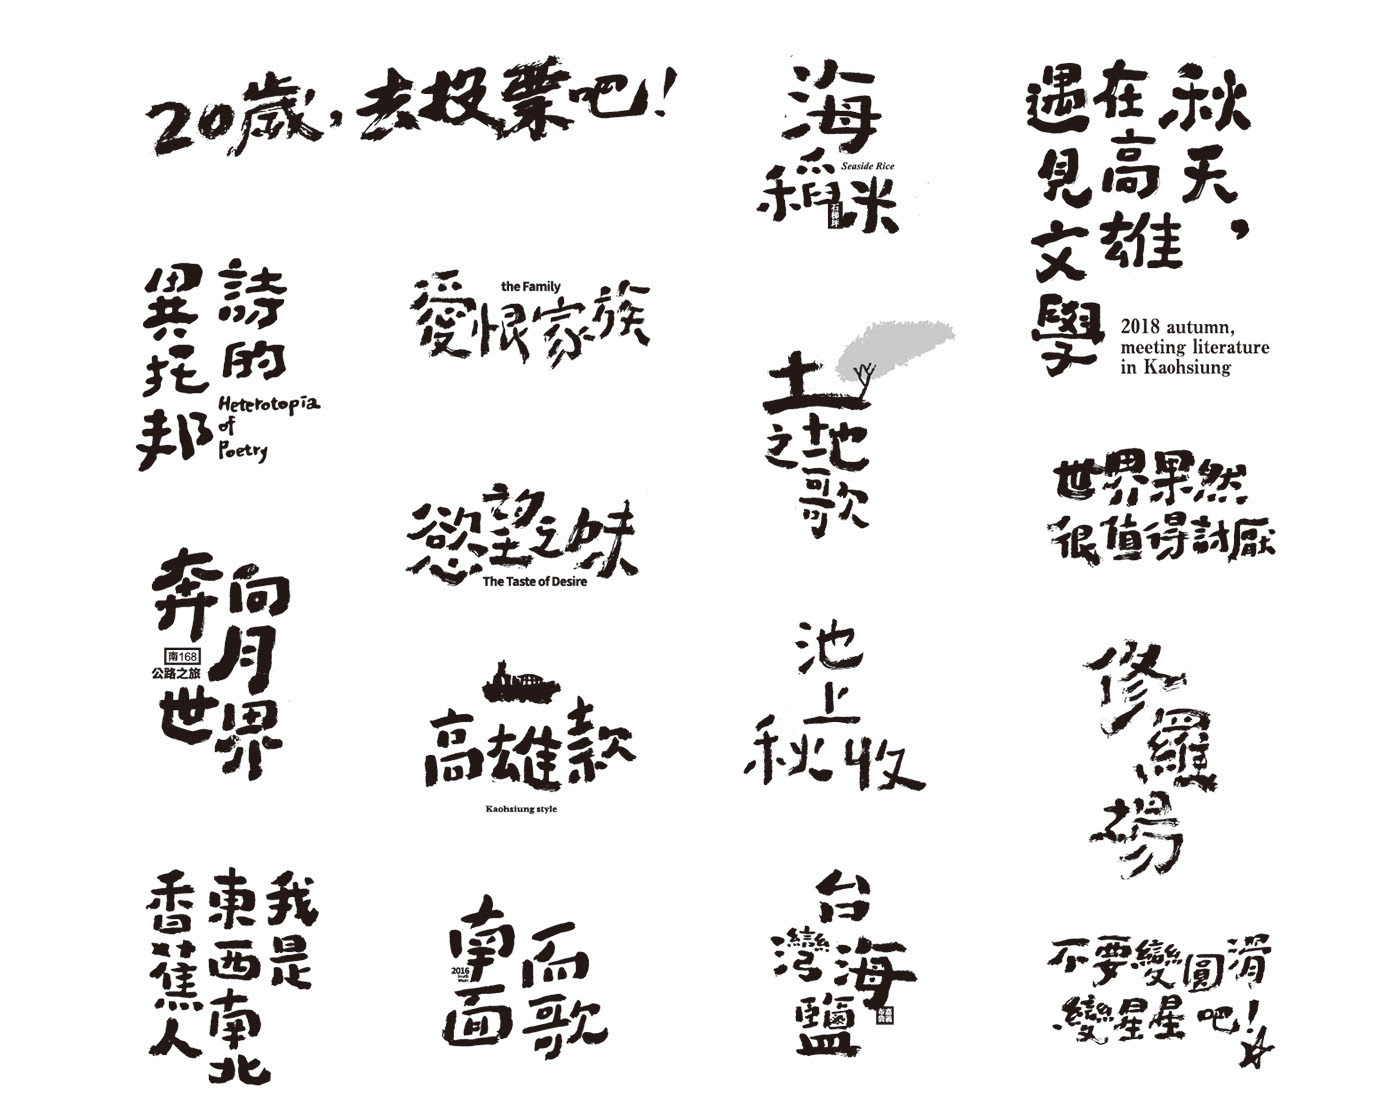 20歲，去投票吧！
海
稻米
Seaside Rice
石梯坪
秋天，
在高雄
遇見文學
2018 autumn,
meeting literature
in Kaohsiung
詩的
異托邦
Heterotopia
of
Poetry
the Family
愛恨家族
土地
之歌
世界果然
很值得討厭
慾望之味
The Taste of Desire
奔向
月
世界
南168
公路之旅
高雄款
Kaohsiung style
池
上
秋收
修
羅
場
我是
東西南北
香蕉人
南面
而歌
2016
台
灣海
鹽
嘉義
布袋
不要變圓滑
變星星吧！